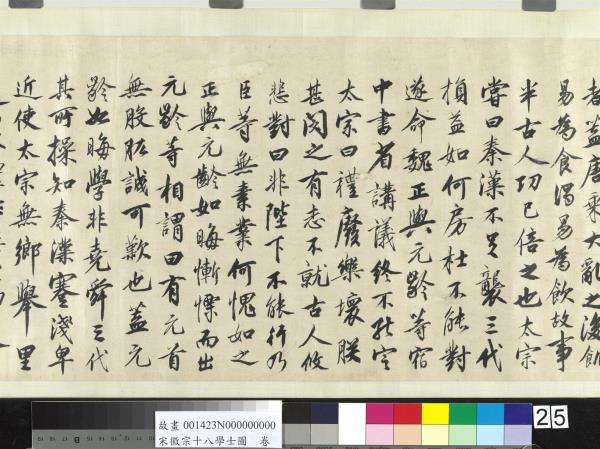 者蓋唐乘大亂之後飢
易為食渴易為飲故事
半古人功已倍之也太宗
嘗曰秦漢不足襲三代
損益如何房杜不能對
遂命魏正與元齡等宿
中書省講議終不能定
太宗曰禮廢樂壞朕
甚閔之有志不就古人攸
悲對曰非陛下不能行乃
臣等無素業何愧如之
正與元齡如晦慚慄而出
元齡等相謂曰有元首
無股肱誠可歎也蓋元
齡如晦學非堯舜三代
其所操知秦漢蹇淺卑
近使太宗無鄉舉里
故畫 001423N000000000
宋徽宗十八學士圖 卷
25